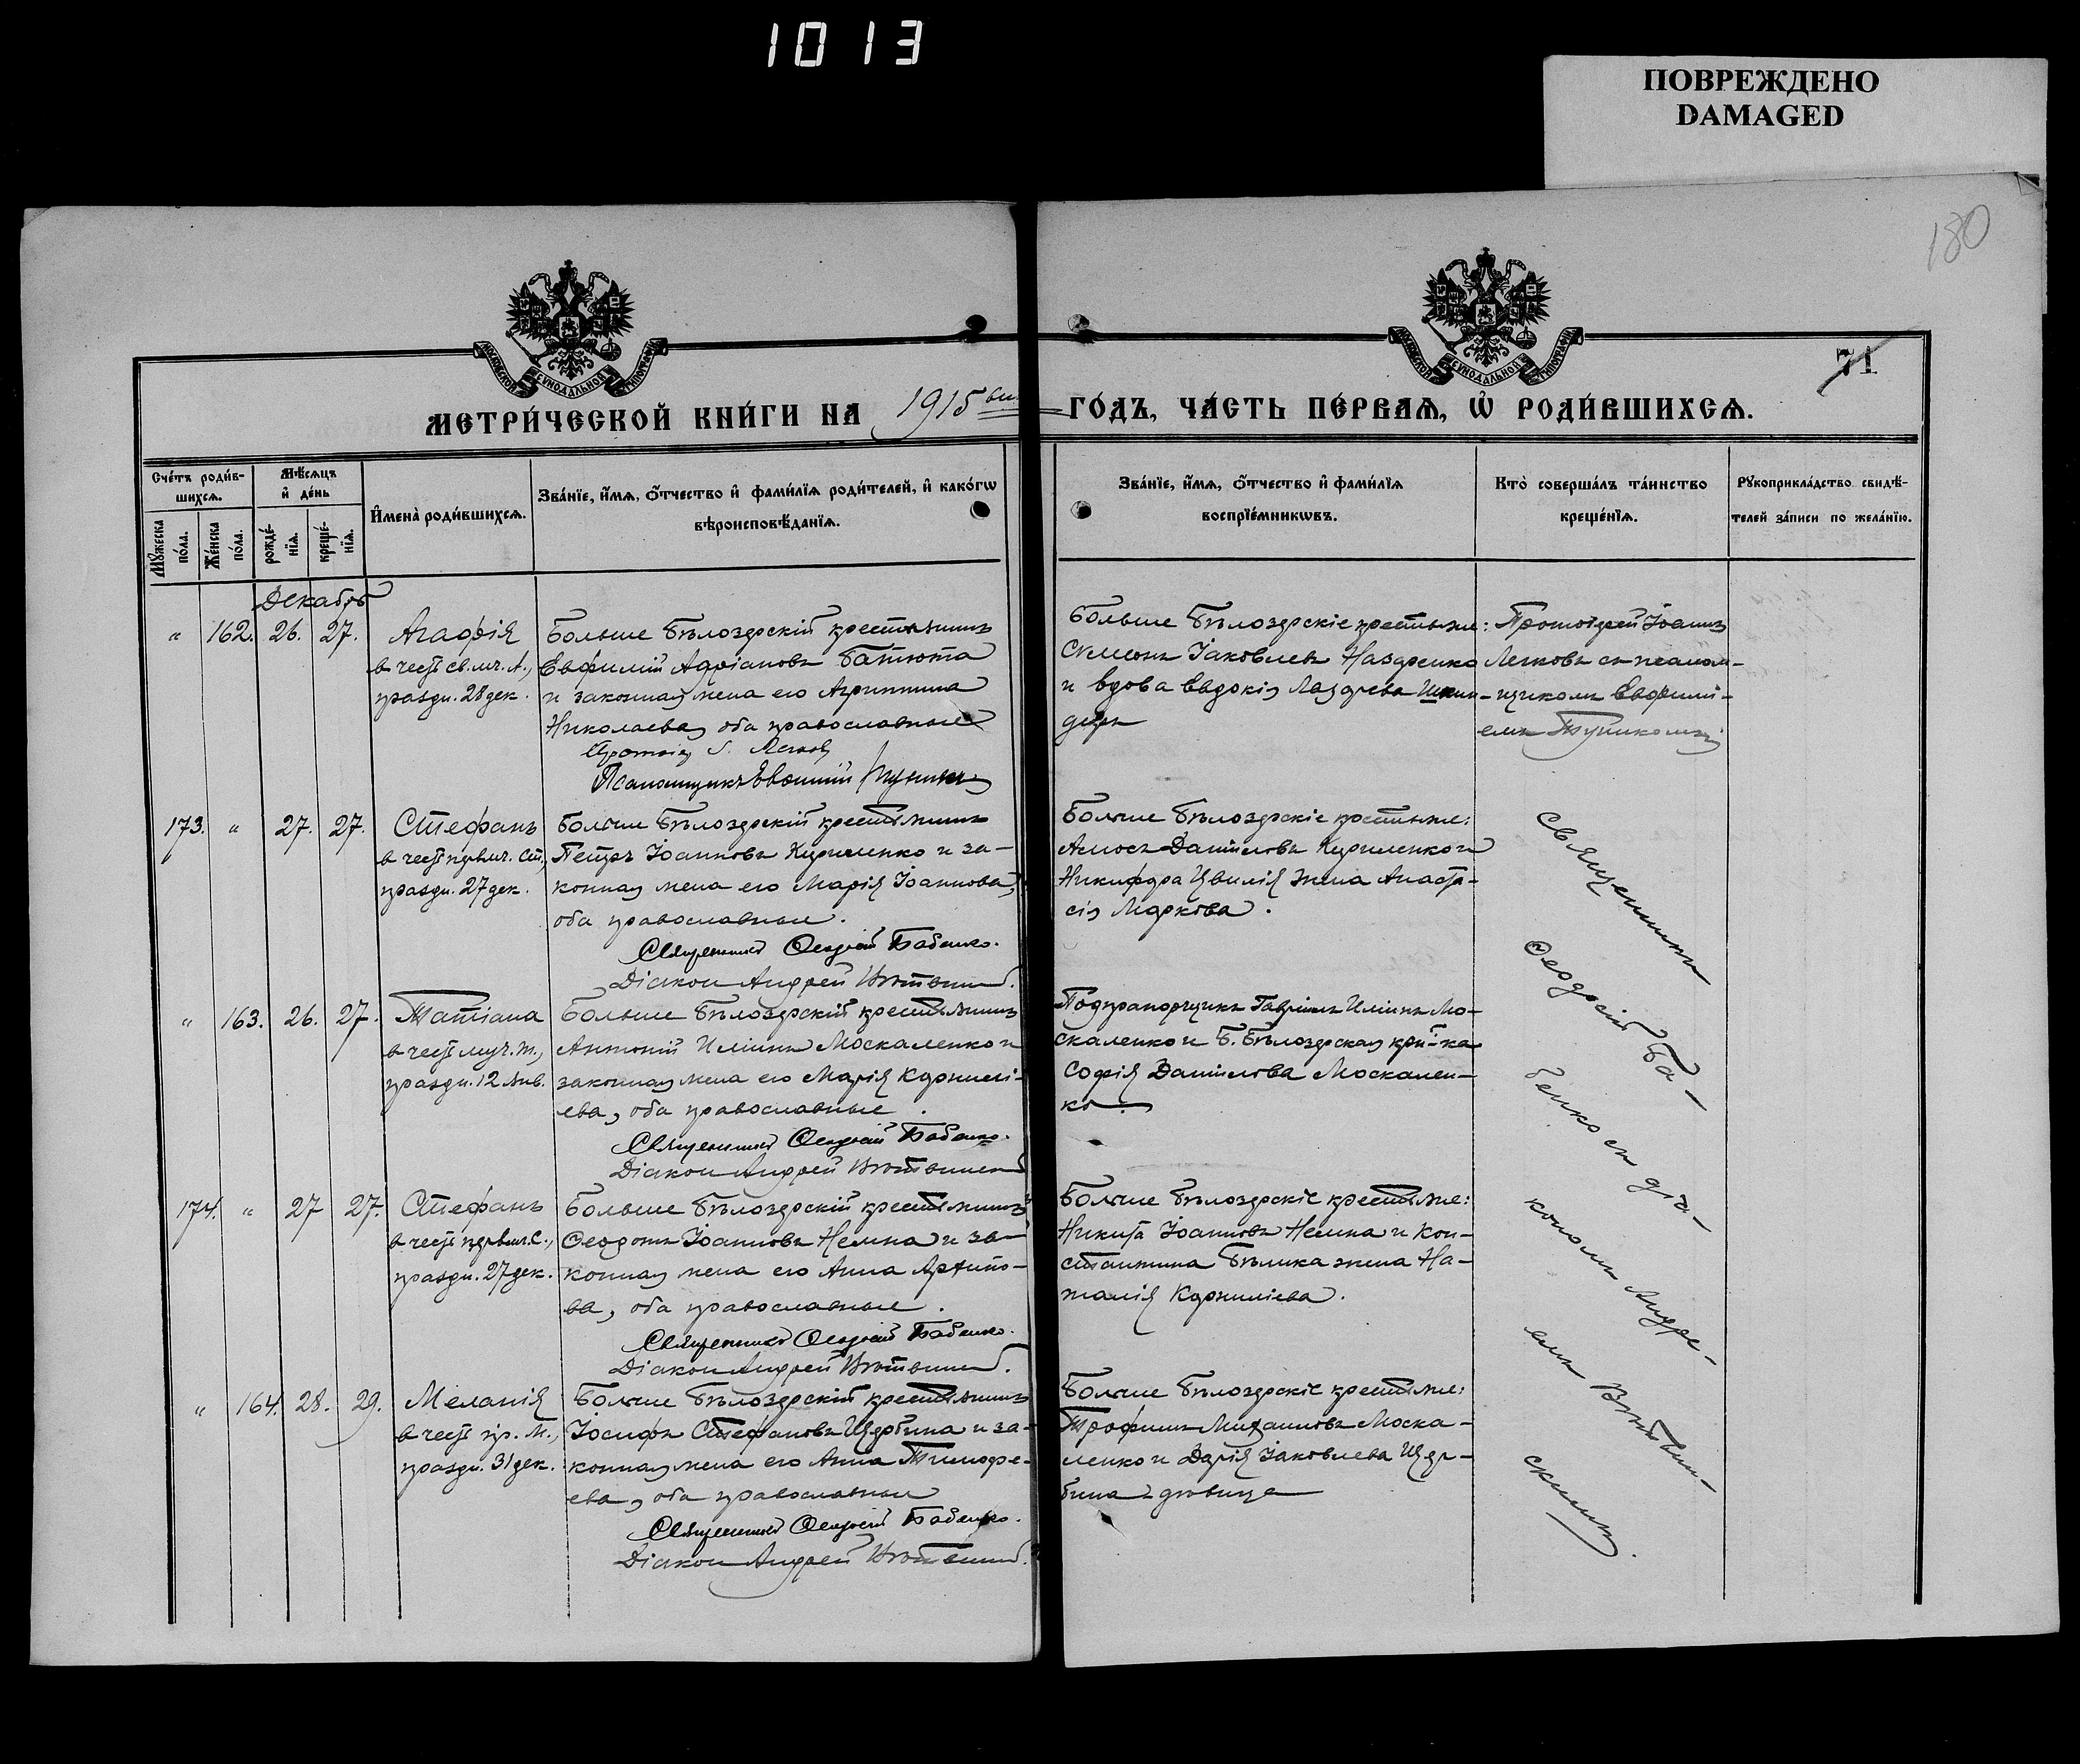 1013
ПОВРЕЖДЕНО
DAMAGED
180
МОСКОВСКОЙ СѴНОДАЛЬНОЙ ТИПОГРАФІИ
МОСКОВСКОЙ СѴНОДАЛЬНОЙ ТИПОГРАФІИ
71
МЕТРИ́ЧЕСКОЙ КНИ́ГИ НА 1915 ГО́ДЪ, ЧА́СТЬ ПЕ́РВАѦ, Ѡ҆ РОДИ́ВШИХСѦ.
Сче́тъ роди́в-
шихсѧ.
Мꙋжеска по́ла.
Же́нска по́ла.
Мѣ́сѧцъ
и҆ де́нь
рожде́-
нїѧ.
креще́-
нїѧ.
И҆мена̀ роди́вшихсѧ.
Зва́нїе, и҆́мѧ, ѻ҆́тчество и҆ фами́лїѧ роди́телей, и҆ како́гѡ
вѣроисповѣ́данїѧ.
Зва́нїе, и҆́мѧ, ѻ҆́тчество и҆ фами́лїѧ
воспрїе́мникѡвъ.
Кто̀ соверша́лъ та́инство
креще́нїѧ.
Рꙋкоприкла́дство свидѣ́-
телей за́писи по жела́нїю.
Декабрь
" 162. 26. 27. Агафія
в честь св. мч. А.,
праздн. 28 дек.
Больше Бѣлозерскій крестьянинъ
Евфимій Адріановъ Батюта
и законная жена его Агриппина
Николаева, оба православные
Протоіер. І. Легков
Псаломщикъ Евфимій
Больше Бѣлозерскіе крестьяне:
Симеонъ Іаковлевъ Назаренко
и вдова Евдокія Лазарева Шкин-
деръ
Протоіерей Іоаннъ
Легковъ съ псалом-
щикомъ Евфимі-
емъ
173. " 27. 27. Стефанъ
в честь первмч. Ст.,
праздн. 27 дек.
Больше Бѣлозерскій крестьянинъ
Петръ Іоанновъ Кириленко и за-
конная жена его Марія Іоаннова,
оба православные.
Священникъ Ѳеодосій Бабенко.
Діакон Андрей
Больше Бѣлозерскіе крестьяне:
Амосъ Даніиловъ Кириленко и
Никифора Цвилія жена Анаста-
сія Маркова.
Священникъ
Ѳеодосій Ба-
бенко съ діа-
кономъ Андре-
емъ Витвин-
скимъ.
" 163. 26. 27. Татіана
в честь муч. Т.,
праздн. 12 янв.
Больше Бѣлозерскій крестьянинъ
Антоній Иліинъ Москаленко и
законная жена его Марія Корнилі-
ева, оба православные.
Священникъ Ѳеодосій Бабенко.
Діакон Андрей
Подпрапорщикъ Гавріилъ Иліинъ Мо-
скаленко и Б. Бѣлозерская кр-ка
Софія Даніилова Москален-
ко.
174. " 27 27. Стефанъ
в честь первмч. С.,
праздн. 27 дек.
Больше Бѣлозерскій крестьянинъ
Ѳеодотъ Іоанновъ Немна и за-
конная жена его Анна Архипо-
ва, оба православные.
Священникъ Ѳеодосій Бабенко.
Діакон Андрей
Больше Бѣлозерскіе крестьяне:
Никита Іоанновъ Немна и Кон-
стантина Бѣлика жена На-
талія Корниліева.
" 164. 28. 29. Меланія
в честь пр. М.,
праздн. 31 дек.
Больше Бѣлозерскій крестьянинъ
Іосифъ Стефановъ Щербина и за-
конная жена его Анна Тимофе-
ева, оба православные
Священникъ Ѳеодосій Бабенко.
Діакон Андрей
Больше Бѣлозерскіе крестьяне:
Трофимъ Михаиловъ Моска-
ленко и Дарія Іаковлева Щер-
бина девица